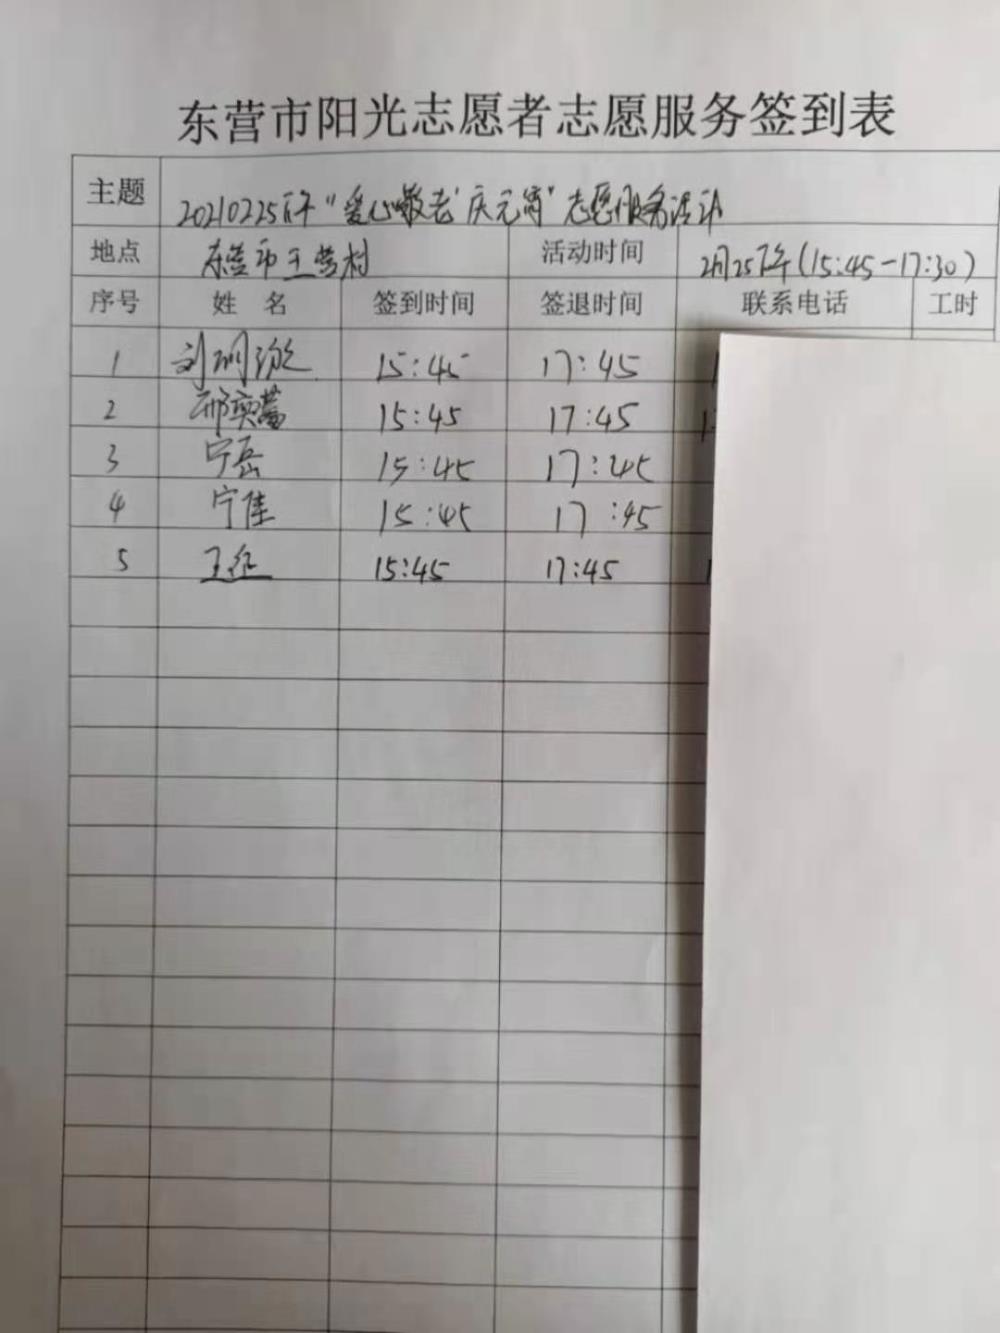 东营市阳光志愿者志愿服务签到表
主题 20210225下午“爱心敬老 庆元宵”志愿服务活动
地点 东营市王营村 活动时间 2月25下午(15:45-17:30)
序号 姓名 签到时间 签退时间 联系电话 工时
1 刘 15:45 17:45
2 邢 15:45 17:45
3 宁岳 15:45 17:45
4 宁佳 15:45 17:45
5 王 15:45 17:45